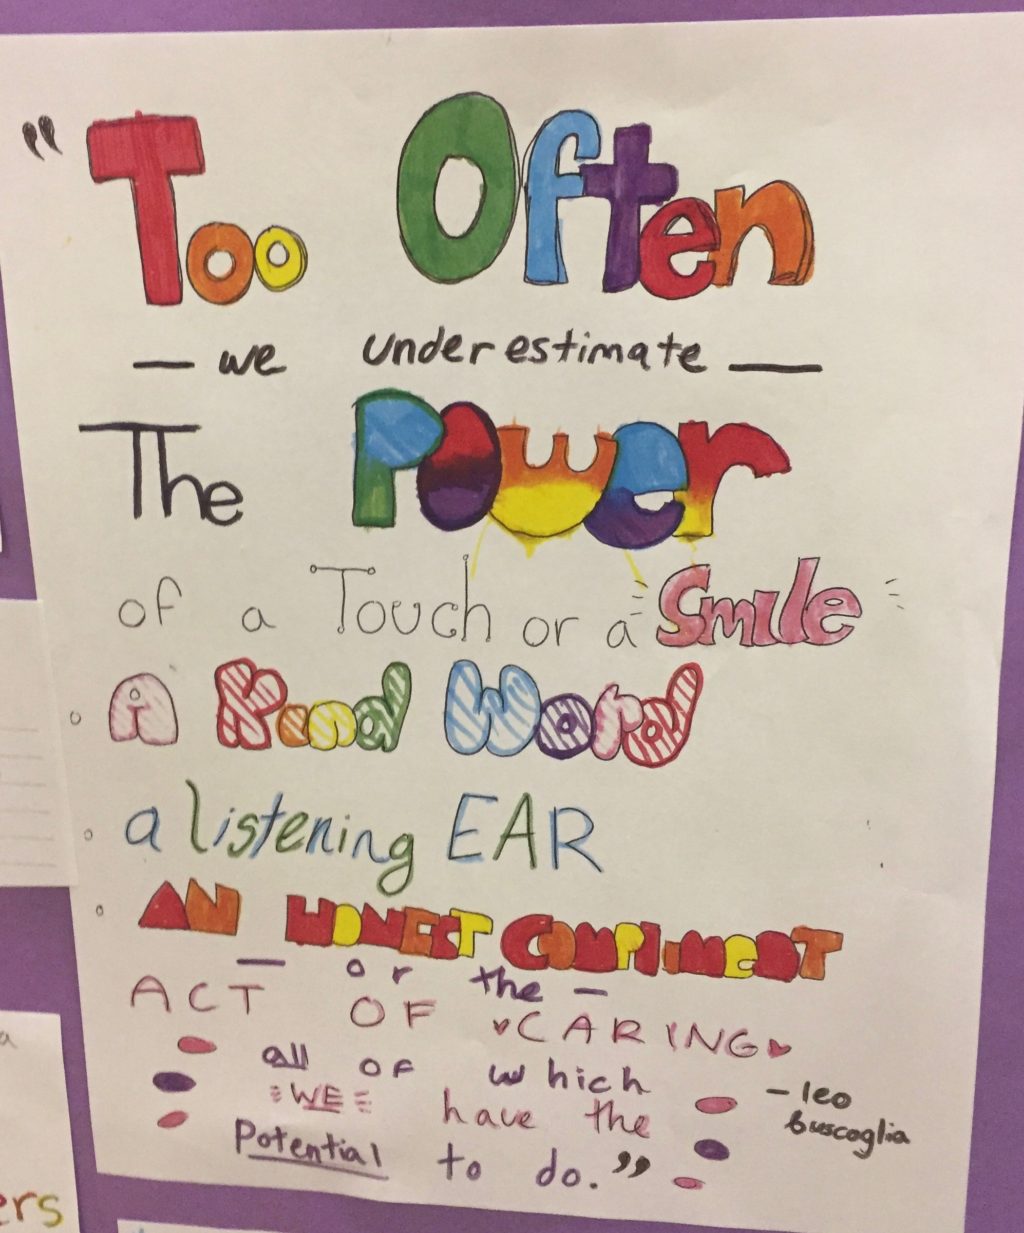 "Too Often
— we underestimate —
The Power
of a Touch or a Smile
A Kind Word
a listening EAR
AN HONEST COMPLIMENT
— or the —
ACT OF CARING
all of which
WE have the
Potential to do."
- leo
buscoglia
ers